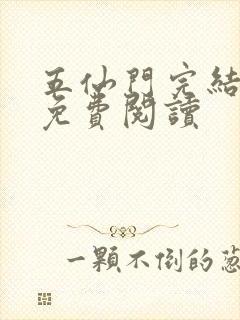 五仙門完結
免費閱讀
一顆不倒的蔥